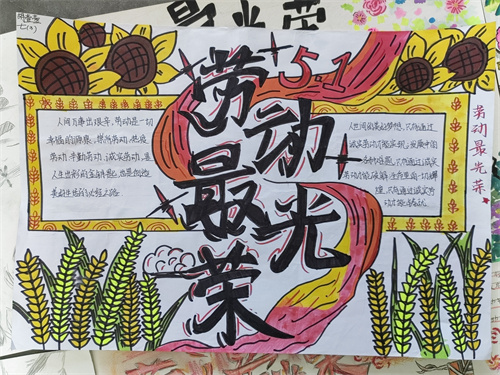 5.1
劳动
最光
荣
人间万事出艰辛，劳动是一切
幸福的源泉，崇尚劳动，热爱
劳动，辛勤劳动，诚实劳动，是
人生出彩的金钥匙，也是创造
美好生活的必经之路。
人世间的美好梦想，只有通过
诚实劳动才能实现；发展中的
各种难题，只有通过诚实
劳动才能破解；生命里的一切辉
煌，只有通过诚实劳
动才能铸就。
劳动最光荣